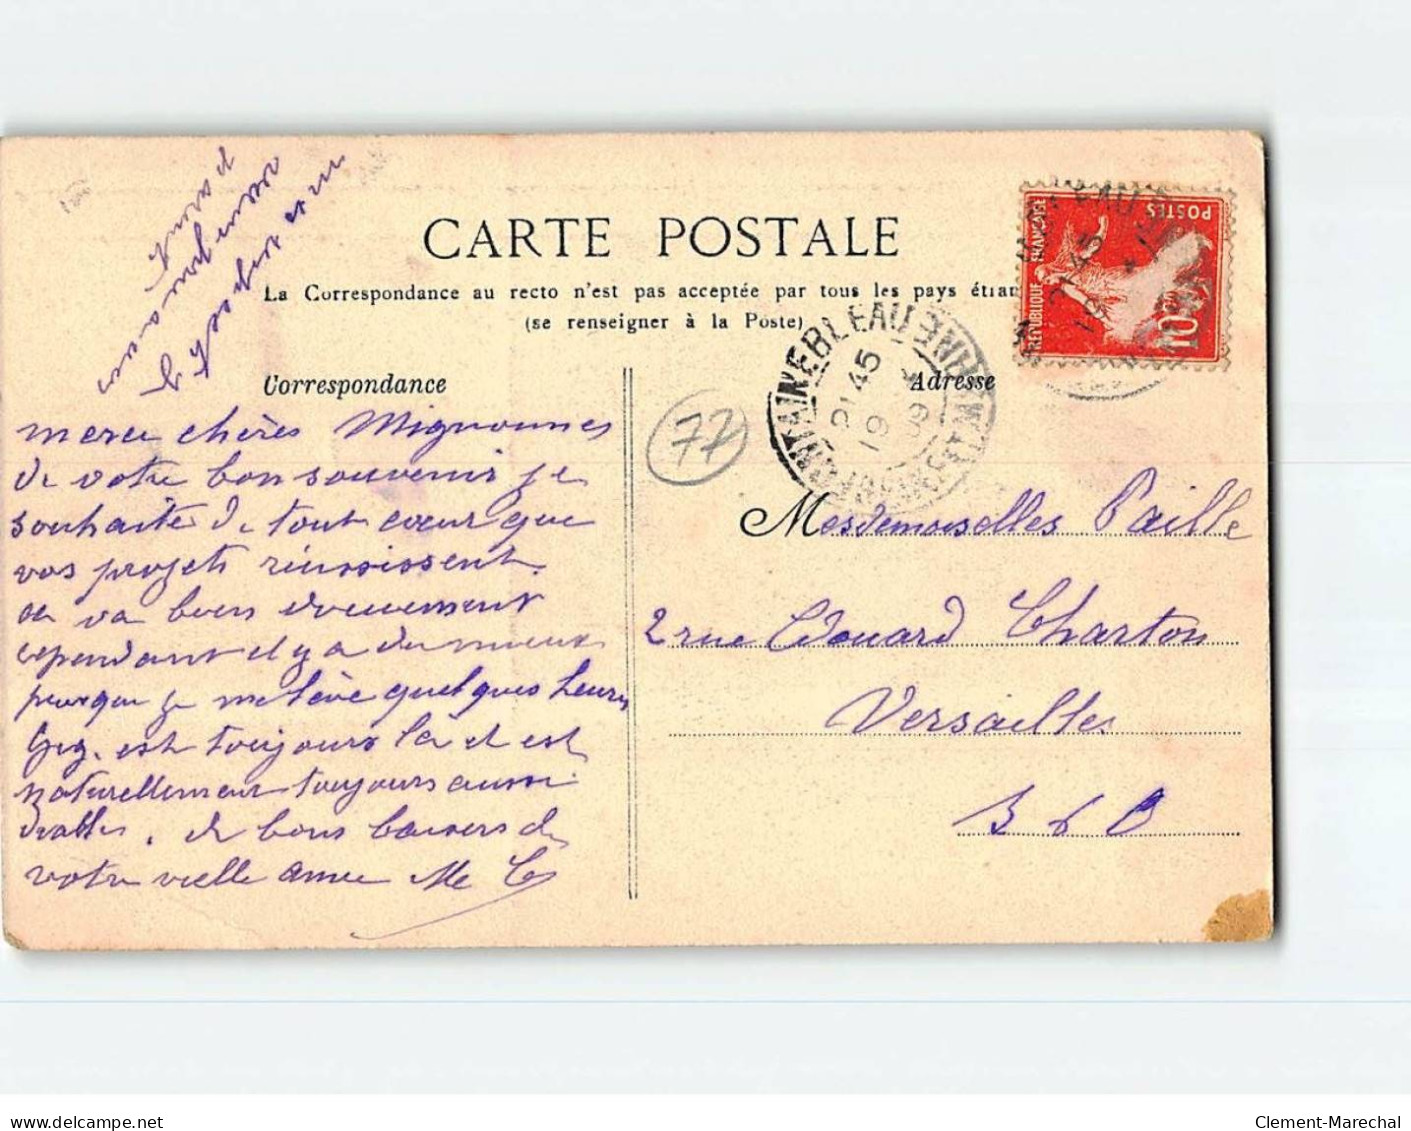 CARTE POSTALE
La Correspondance au recto n'est pas acceptée par tous les pays étran
(se renseigner à la Poste)
Correspondance
Adresse
merci chères Mignonnes
de votre bon souvenir je
souhaite de tout cœur que
vos projets réussissent.
ça va bien doucement
cependant il y a du mieux
puisque je me lève quelques heures
Geg. est toujours là et est
naturellement toujours aussi
diable. de bons baisers de
votre vieille amie Me
77
FONTAINEBLEAU
SEINE ET MARNE
21 45
19
09
REPUBLIQUE FRANÇAISE
POSTES
10c
Mesdemoiselles Paille
2 rue Edouard Charton
Versailles
S & O
Clement-Marechal